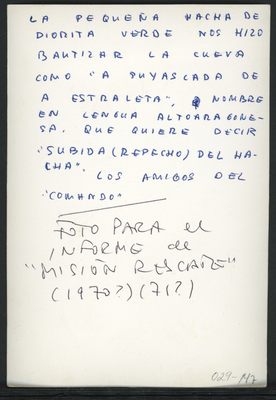 LA PEQUEÑA HACHA DE
DIORITA VERDE NOS HIZO
BAUTIZAR LA CUEVA
COMO "A PUYASCADA DE
A ESTRALETA", NOMBRE
EN LENGUA ALTOARAGONE-
SA, QUE QUIERE DECIR
"SUBIDA (REPECHO) DEL HA-
CHA".
LOS AMIGOS DEL
"COMANDO"
FOTO PARA el
INFORME de
"MISIÓN RESCATE"
(1970?) (71?)
029-M7